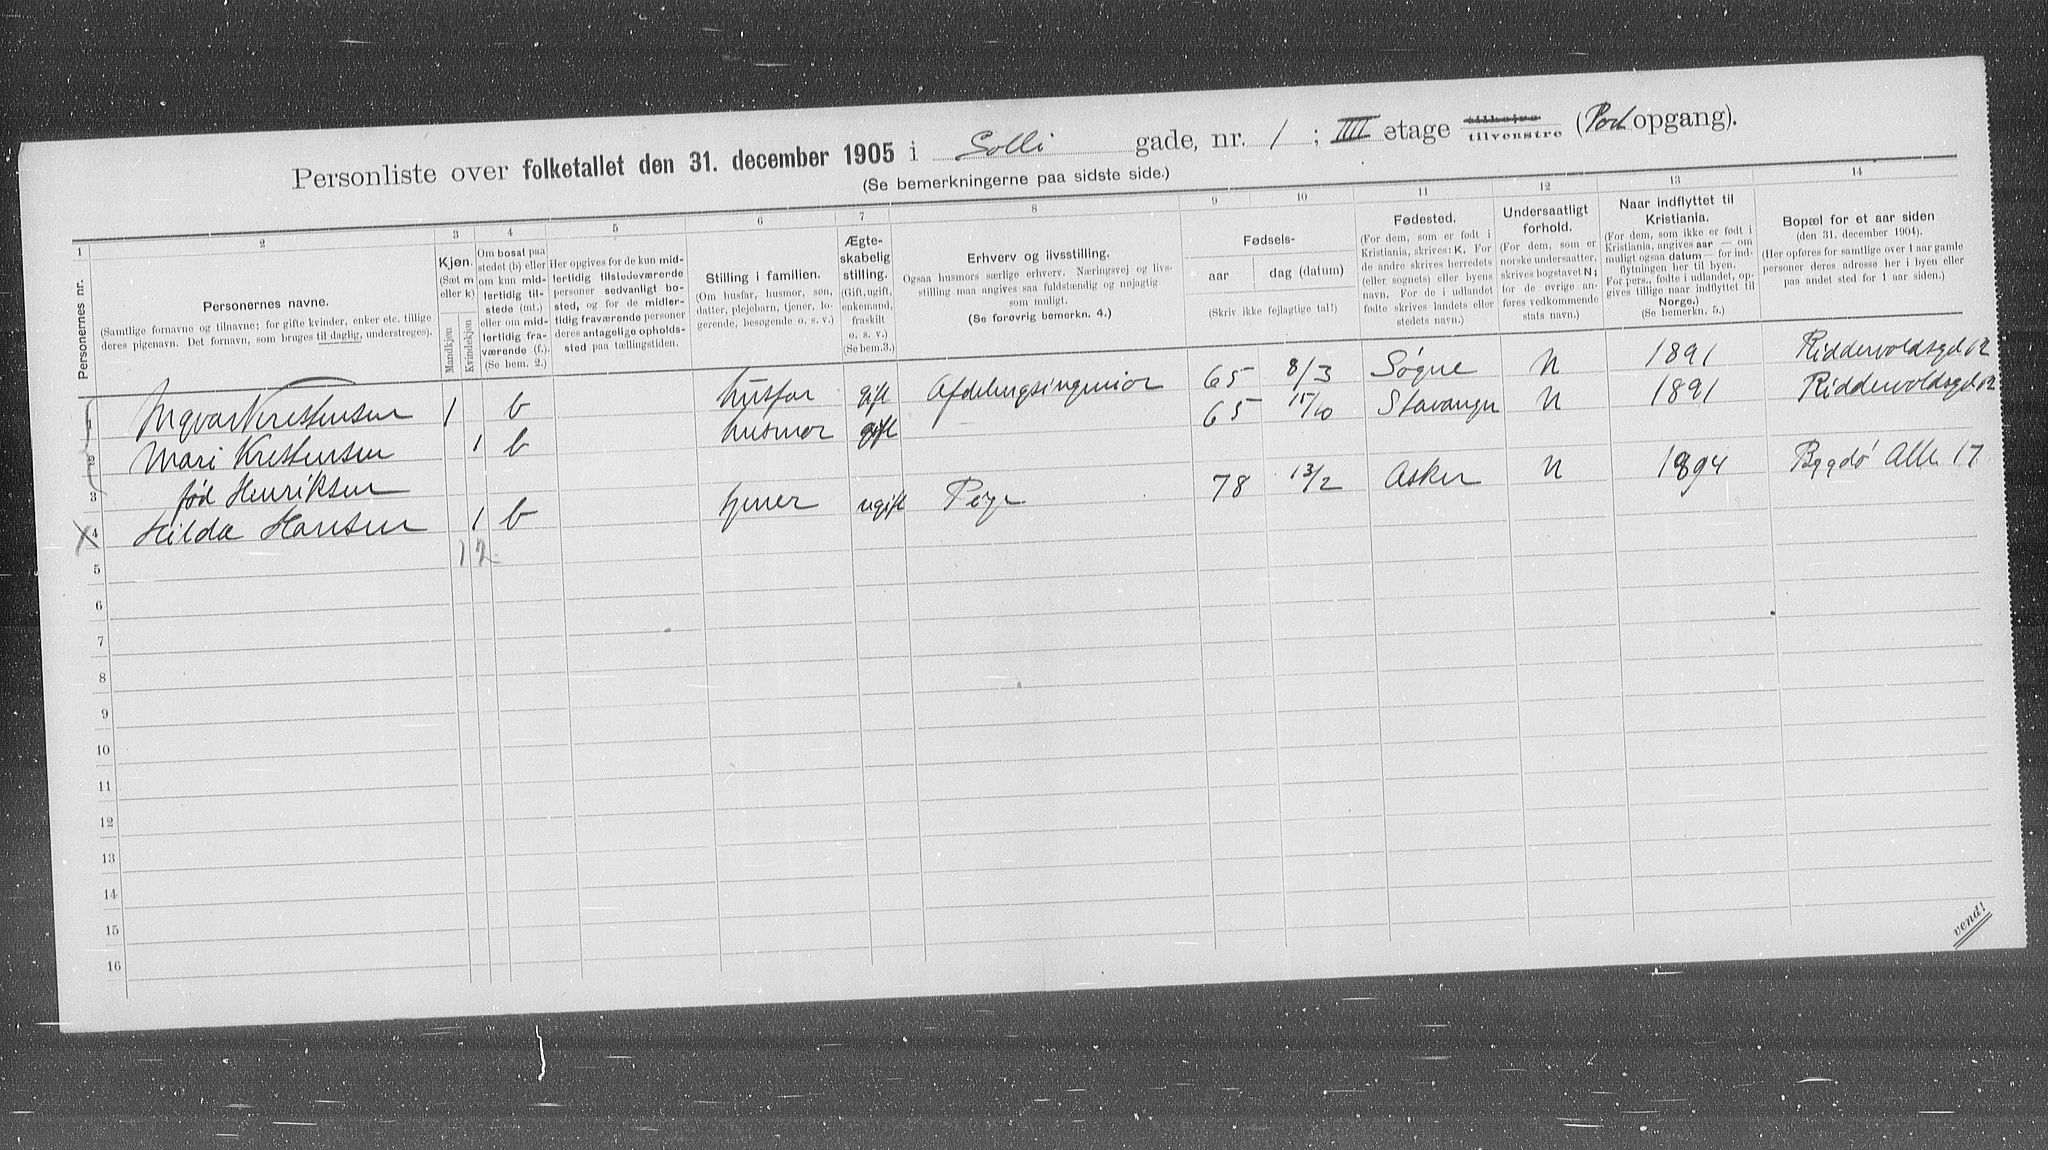 Personliste over folketallet den 31. december 1905 i Solli gade, nr. 1 ; IIII etage tilhøire tilvenstre (Port opgang).
(Se bemerkningerne paa sidste side.)
1 2 3 4 5 6 7 8 9 10 11 12 13 14
Personernes nr.
Personernes navne.
(Samtlige fornavne og tilnavne; for gifte kvinder, enker etc. tillige
deres pigenavn. Det fornavn, som bruges til daglig, understreges).
Kjøn.
(Sæt m
eller k)
Mandkjøn
Kvindekjøn
Om bosat paa
stedet (b) eller
om kun mid-
lertidig til-
stede (mt.)
eller om mid-
lertidig fra-
værende (f.).
(Se bem. 2.)
Her opgives for de kun mid-
lertidig tilstedeværende
personer sedvanligt bo-
sted, og for de midler-
tidig fraværende personer
deres antagelige opholds-
sted paa tællingstiden.
Stilling i familien.
(Om husfar, husmor, søn,
datter, plejebarn, tjener, lo-
gerende, besøgende o. s. v.)
Ægte-
skabelig
stilling.
(Gift, ugift,
enkemand,
fraskilt
o. s. v.)
(Se bem. 3.)
Erhverv og livsstilling.
Ogsaa husmors særlige erhverv. Næringsvej og livs-
stilling maa angives saa fuldstændig og nøjagtig
som muligt.
(Se forøvrig bemerkn. 4.)
Fødsels-
aar
dag (datum)
(Skriv ikke fejlagtige tal!)
Fødested.
(For dem, som er født i
Kristiania, skrives: K. For
de andre skrives herredets
(eller sognets) eller byens
navn. For de i udlandet
fødte skrives landets eller
stedets navn.)
Undersaatligt
forhold.
(For dem, som er
norske undersaatter,
skrives bogstavet N;
for de øvrige an-
føres vedkommende
stats navn.)
Naar indflyttet til
Kristiania.
(For dem, som ikke er født i
Kristiania, angives aar — om
muligt ogsaa datum — for ind-
flytningen her til byen.
For pers., fødte i udlandet, op-
gives tillige naar indflyttet til
Norge.)
(Se bemerkn. 5.)
Bopæl for et aar siden
(den 31. december 1904).
(Her opføres for samtlige over 1 aar gamle
personer deres adresse her i byen eller
paa andet sted for 1 aar siden.)
1 Ingvar Kristensen 1 b husfar gift Afdelingsingeniør 65 8/3 Søgne N 1891 Riddervoldsgd 12
2 Mari Kristensen 1 b husmor gift 65 15/10 Stavanger N 1891 Riddervoldsgd 12
3 fød Henriksen
4 Hilda Hansen 1 b tjener ugift Pige 78 13/2 Asker N 1894 Bygdø Alle 17
5 1 2
6
7
8
9
10
11
12
13
14
15
16
vend!